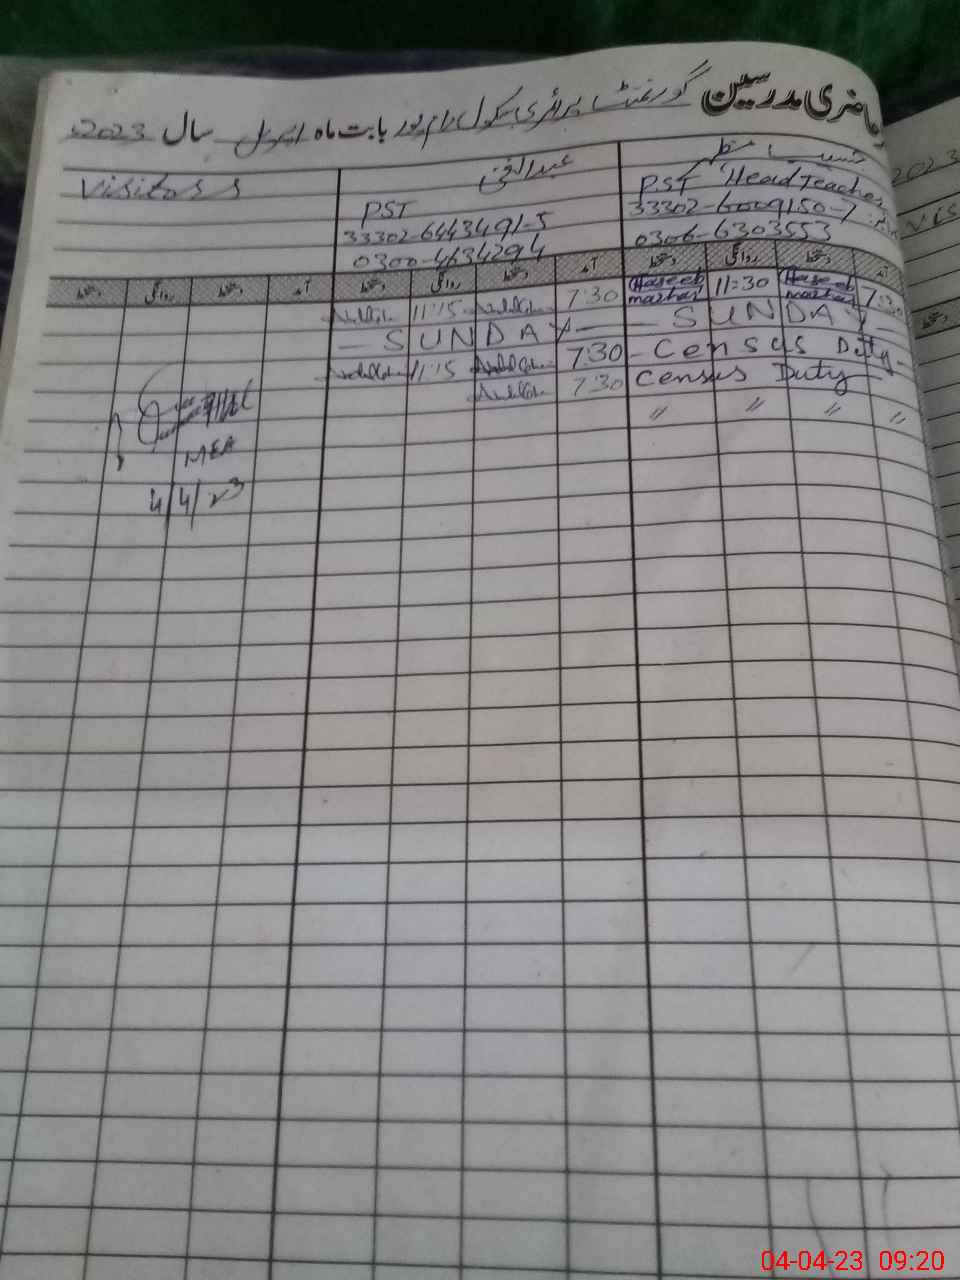 حاضری مدرسین گورنمنٹ پرائمری سکول رام پور بابت ماہ اپریل سال 2023
حسیب مظہر
عبدالغنی
Visitors
PST Head Teacher
PST
33302-6009150-7
33302-6443491-5
0306-6303553
0300-4634294
آمد دستخط روانگی دستخط آمد دستخط روانگی دستخط آمد دستخط روانگی دستخط
7:30 Haseeb mazhar 11:30 Haseeb mazhar 7:30 11:15
— SUNDAY — — SUNDAY —
— Census Duty — 7:30 11:15
Census Duty 7:30
〃 〃 〃 〃
MEA
4/4/23
2023
Vis
04-04-23 09:20